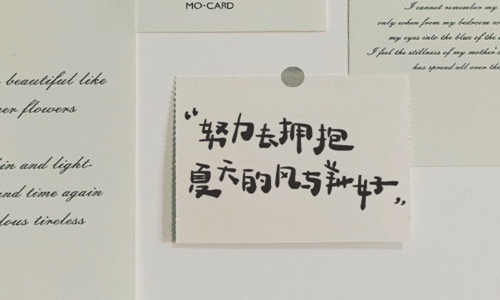 MO·CARD
I cannot remember my
only when from my bedroom w
my eyes into the blue of the
I feel the stillness of my mother's
has spread all over the
beautiful like
er flowers
in and light-
and time again
lous tireless
“努力去拥抱
夏天的风与美好”